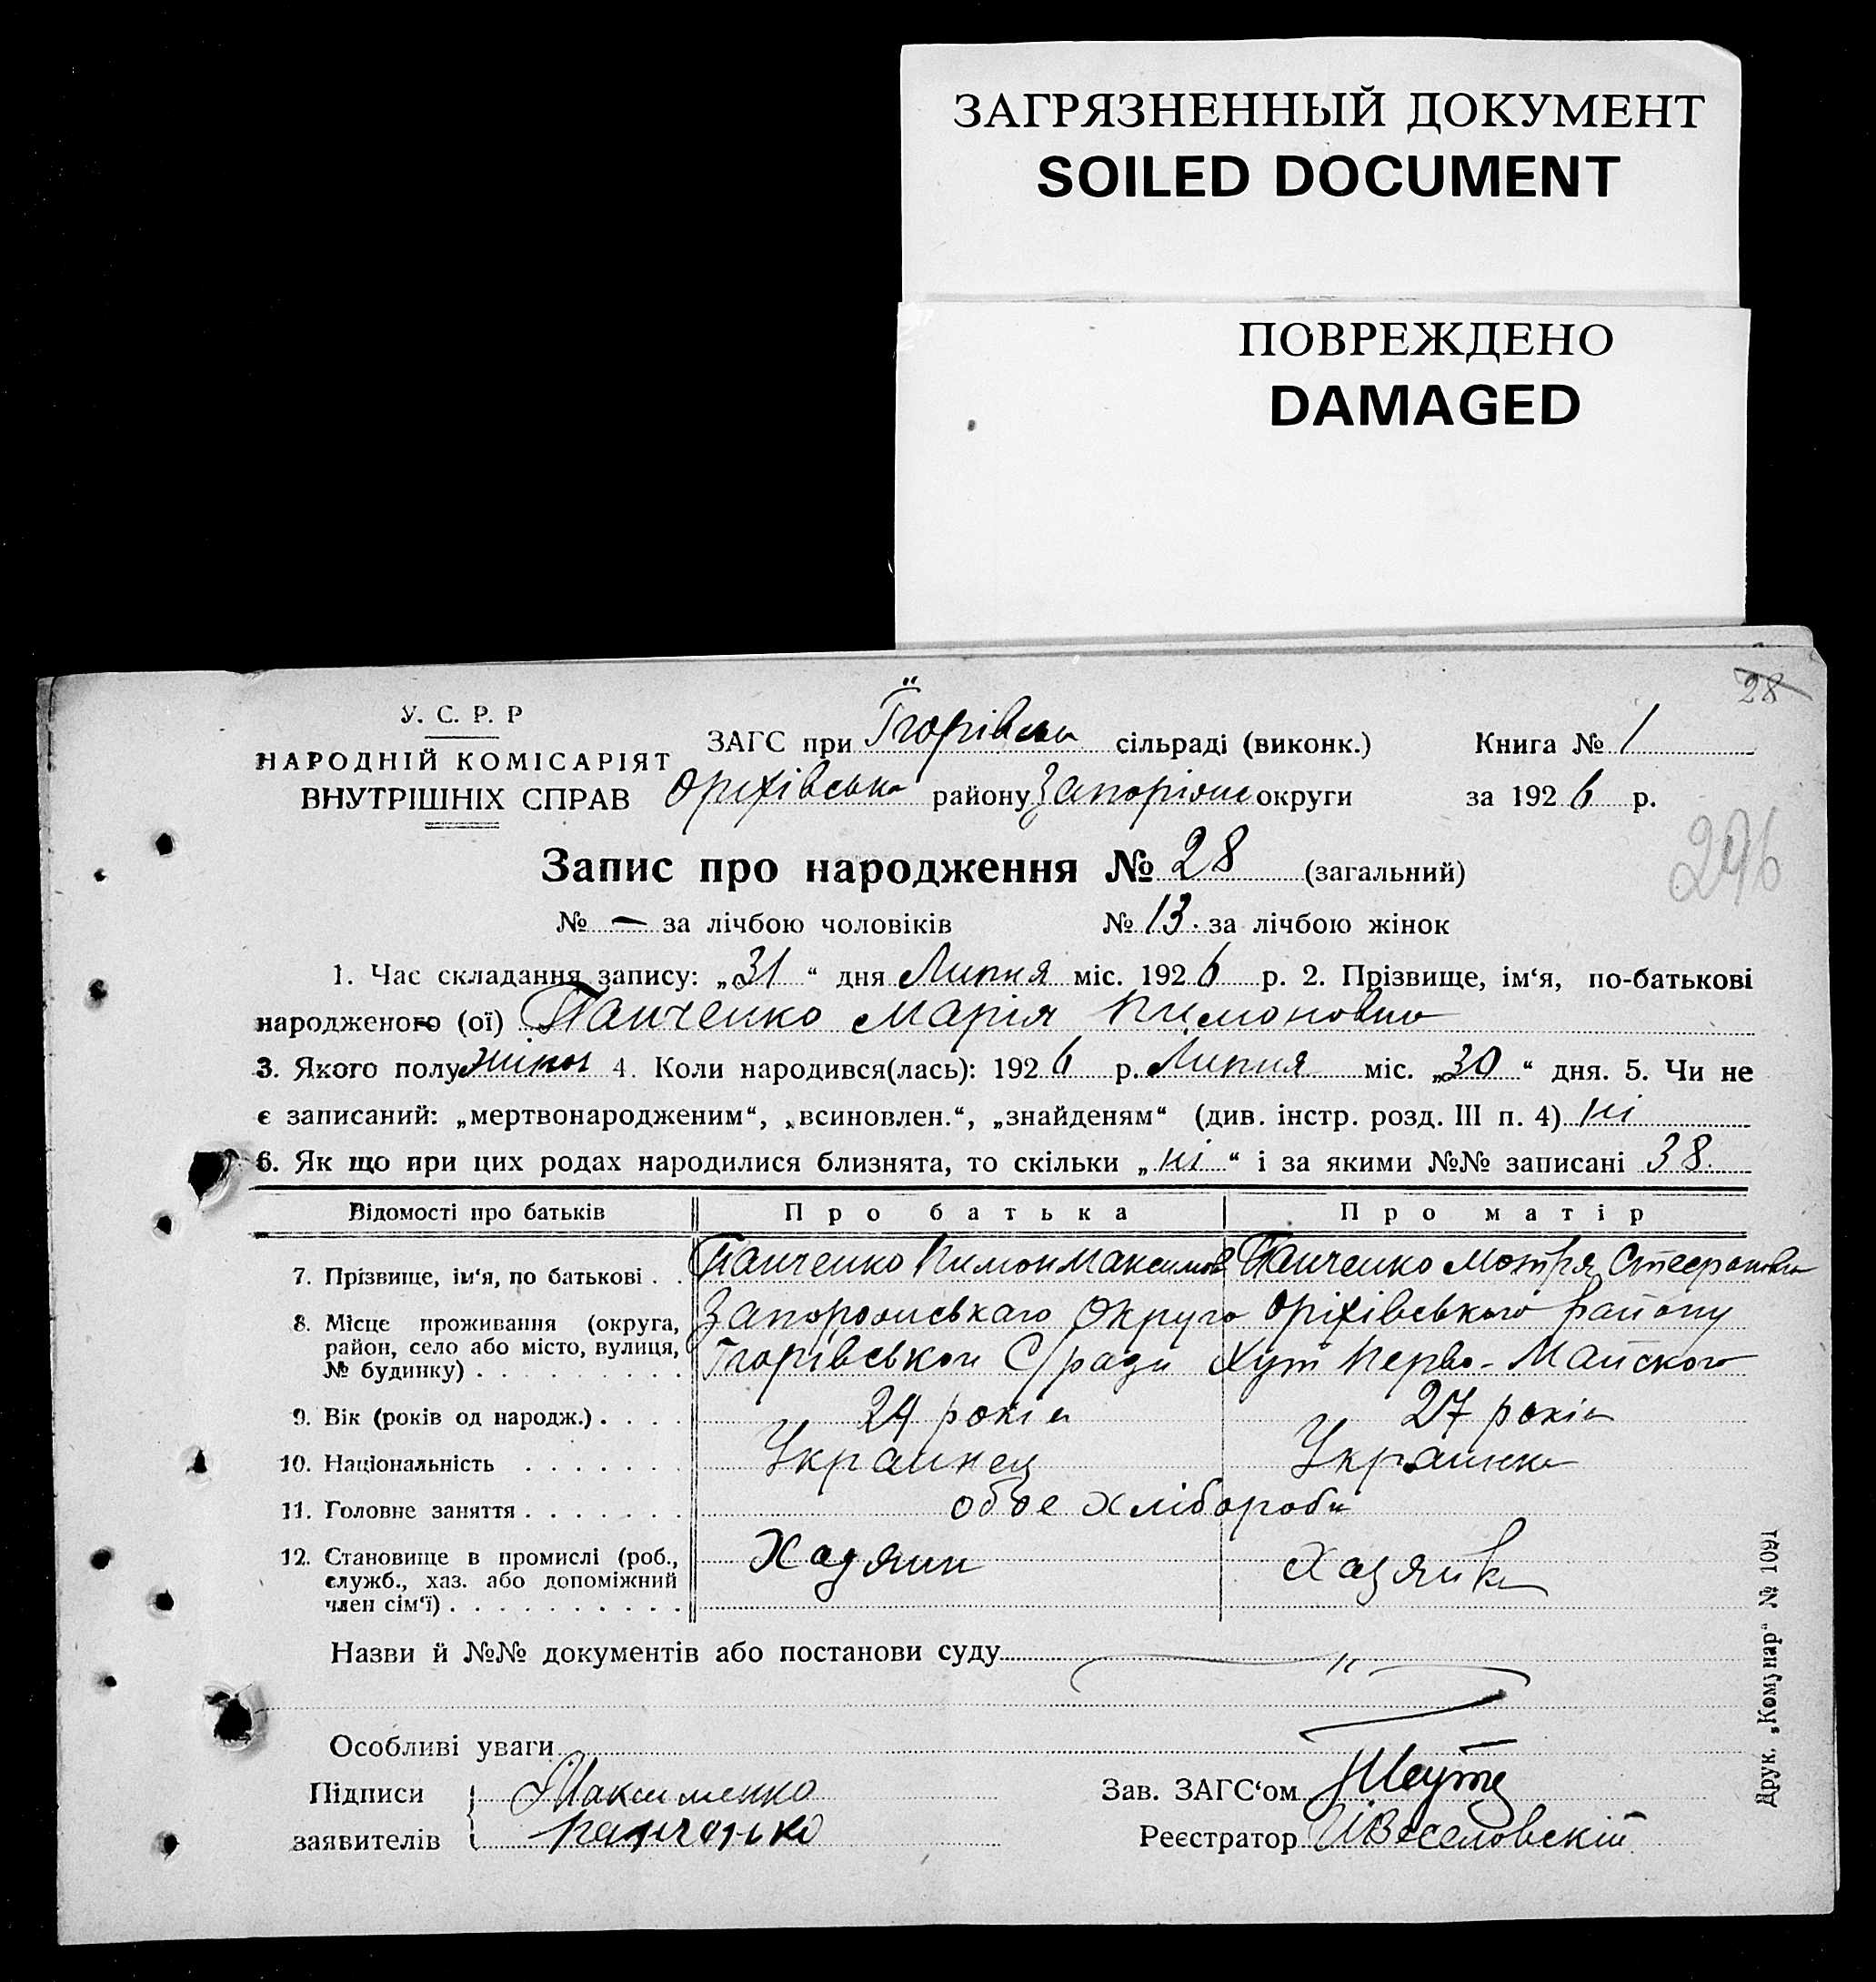 ЗАГРЯЗНЕННЫЙ ДОКУМЕНТ
SOILED DOCUMENT
ПОВРЕЖДЕНО
DAMAGED
28
У. С. Р. Р
НАРОДНІЙ КОМІСАРІЯТ
ВНУТРІШНІХ СПРАВ
ЗАГС при сільраді (виконк.) Книга № 1
Оріхівська району Запоріжс округи за 1926 р.
296
Запис про народження № 28 (загальний)
№ — за лічбою чоловіків № 13. за лічбою жінок
1. Час складання запису: „31“ дня Липня міс. 1926 р. 2. Прізвище, ім‘я, по-батькові
народженого (ої) Панченко Марія Пимоновна
3. Якого полу жіноч 4. Коли народився(лась): 1926 р. Липня міс. „30“ дня. 5. Чи не
є записаний: „мертвонародженим“, „всиновлен.“, „знайденям“ (див. інстр. розд. III п. 4) ні
6. Як що при цих родах народилися близнята, то скільки „ні“ і за якими №№ записані 38
Відомості про батьків Про батька Про матір
7. Прізвище, ім‘я, по батькові . . Панченко Пимон Максимов Панченко Мотря Стефановна
8. Місце проживання (округа, район, село або місто, вулиця, № будинку) . . . . . . . . .
Запорожськаго Округа Оріхівського району
С/ради Хут Перво-Майского
9. Вік (років од народж.) . . . . 24 років 27 років
10. Національність . . . . . . . Украинец Украинка
11. Головне заняття . . . . . . . обое хлібороби
12. Становище в промислі (роб., служб., хаз. або допоміжний член сім‘ї) . . . . . . . . . . Хазяин Хазяйка
Назви й №№ документів або постанови суду
Особливі уваги
Підписи заявителів Максименко
Панченко
Зав. ЗАГС‘ом
Реєстратор Веселовскій
Друк. „Комунар“ № 1091